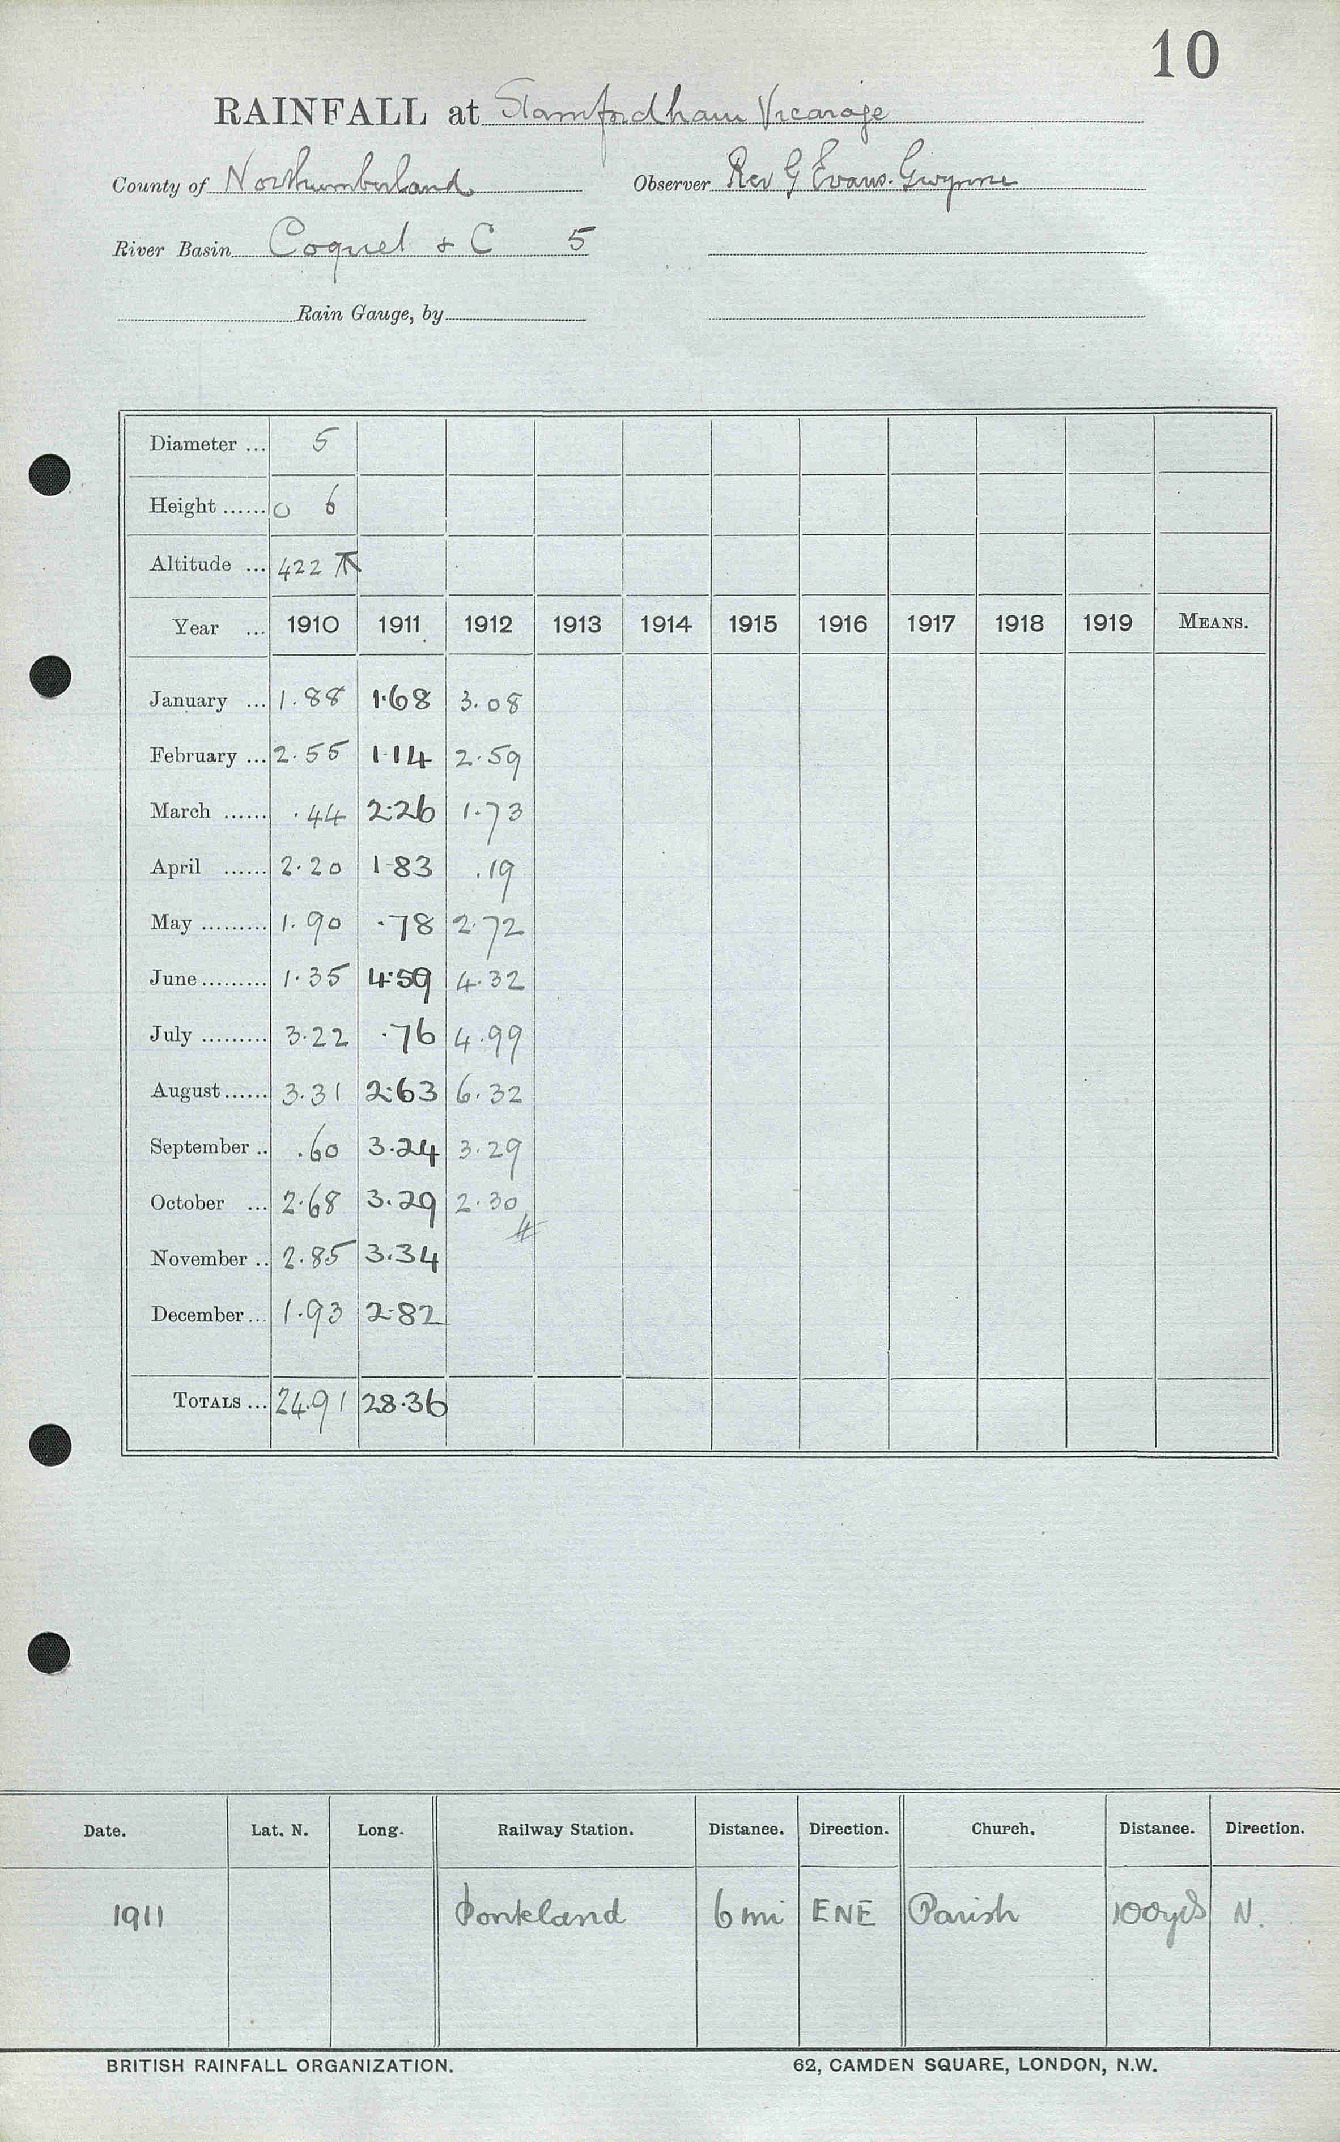 10
RAINFALL at Stamfordham Vicarage
County of Northumberland Observer Rev G Evans-Gwynne
River Basin Coquet & C 5
Rain Gauge, by
Diameter ... 5
Height ...... 0 6
Altitude ... 422
Year ... 1910 1911 1912 1913 1914 1915 1916 1917 1918 1919 MEANS.
January ... 1.88 1.68 3.08
February ... 2.55 1.14 2.59
March ...... .44 2.26 1.73
April ...... 2.20 1.83 .19
May ......... 1.90 .78 2.72
June ......... 1.35 4.59 4.32
July ......... 3.22 .76 4.99
August ...... 3.31 2.63 6.32
September .. .60 3.24 3.29
October ... 2.68 3.29 2.30
November .. 2.85 3.34
December ... 1.93 2.82
TOTALS ... 24.91 28.36
Date. Lat. N. Long. Railway Station. Distance. Direction. Church. Distance. Direction.
1911 Ponteland 6 mi ENE Parish 100yds N.
BRITISH RAINFALL ORGANIZATION. 62, CAMDEN SQUARE, LONDON, N.W.